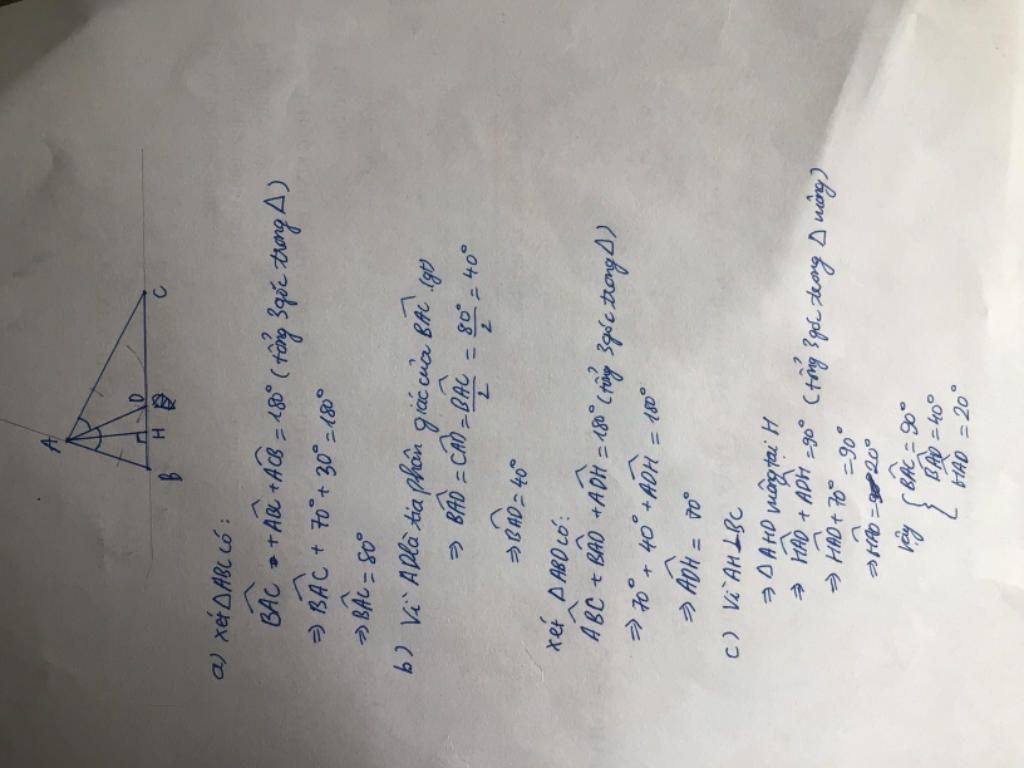 A
B H D C
a) xét ΔABC có:
BAC + ABC + ACB = 180° (tổng 3 góc trong Δ)
⇒ BAC + 70° + 30° = 180°
⇒ BAC = 80°
b) Vì AD là tia phân giác của BAC (gt)
⇒ BAD = CAD = BAC/2 = 80°/2 = 40°
⇒ BAD = 40°
xét ΔABD có:
ABC + BAD + ADH = 180° (tổng 3 góc trong Δ)
⇒ 70° + 40° + ADH = 180°
⇒ ADH = 70°
c) Vì AH ⊥ BC
⇒ ΔAHD vuông tại H
⇒ HAD + ADH = 90° (tổng 3 góc trong Δ vuông)
⇒ HAD + 70° = 90°
⇒ HAD = 20°
Vậy { BAC = 90°
BAD = 40°
HAD = 20°